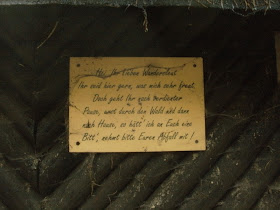 Hey, Ihr lieben Wandersleut
Ihr seid hier gern, was mich sehr freut.
Doch geht Ihr nach verdienter
Pause, durch den Wald und dann
nach Hause, so hätt' ich an Euch eine
Bitt', nehmt bitte Euren Abfall mit!